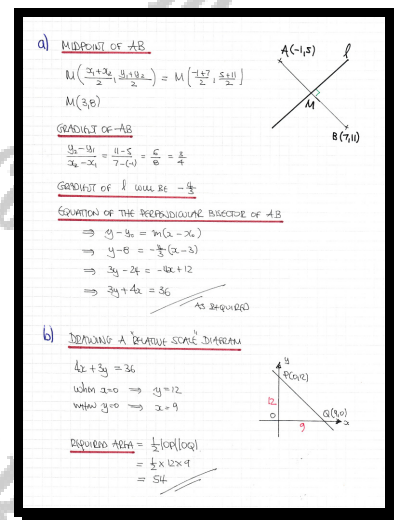 a) MIDPOINT OF AB
M((x₁+x₂)/2, (y₁+y₂)/2) = M((-1+7)/2, (5+11)/2)
M(3,8)
GRADIENT OF AB
(y₂-y₁)/(x₂-x₁) = (11-5)/(7-(-1)) = 6/8 = 3/4
GRADIENT OF l WILL BE -4/3
EQUATION OF THE PERPENDICULAR BISECTOR OF AB
⇒ y-y₀ = m(x-x₀)
⇒ y-8 = -4/3(x-3)
⇒ 3y-24 = -4x+12
⇒ 3y+4x = 36
AS REQUIRED
A(-1,5)
l
M
B(7,11)
b) DRAWING A "RELATIVE SCALE" DIAGRAM
4x+3y = 36
When x=0 ⇒ y=12
when y=0 ⇒ x=9
REQUIRED AREA = ½|OP||OQ|
= ½×12×9
= 54
y
P(0,12)
12
O
9
Q(9,0)
x